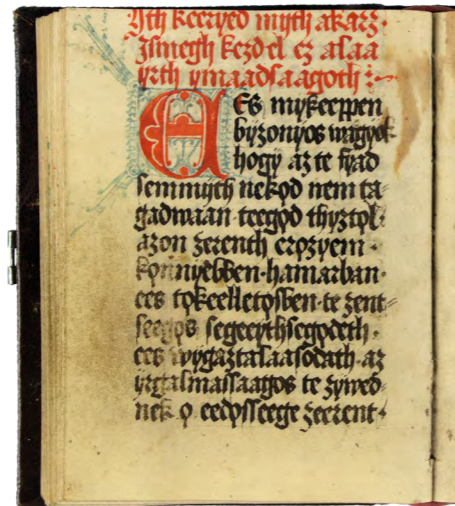 Ith keeryed myth akarz ·
zsmegh kezdel ez alaa
yrth ymaadsaagoth :~
Ees mykeeppen
byzonyos wagyok
hogy az te fyad
semmyth nekod nem ta-
gadwaan · teegod thyztol ·
azon zerenth erozyem ·
konnyebben · hamarban ·
ees tokeelletosben · te zent-
seegos segeeythseegodeth ·
ees wygaztalaasodath · az
yrgalmassaagos te zywed-
nek o eedosseege zeerent ·